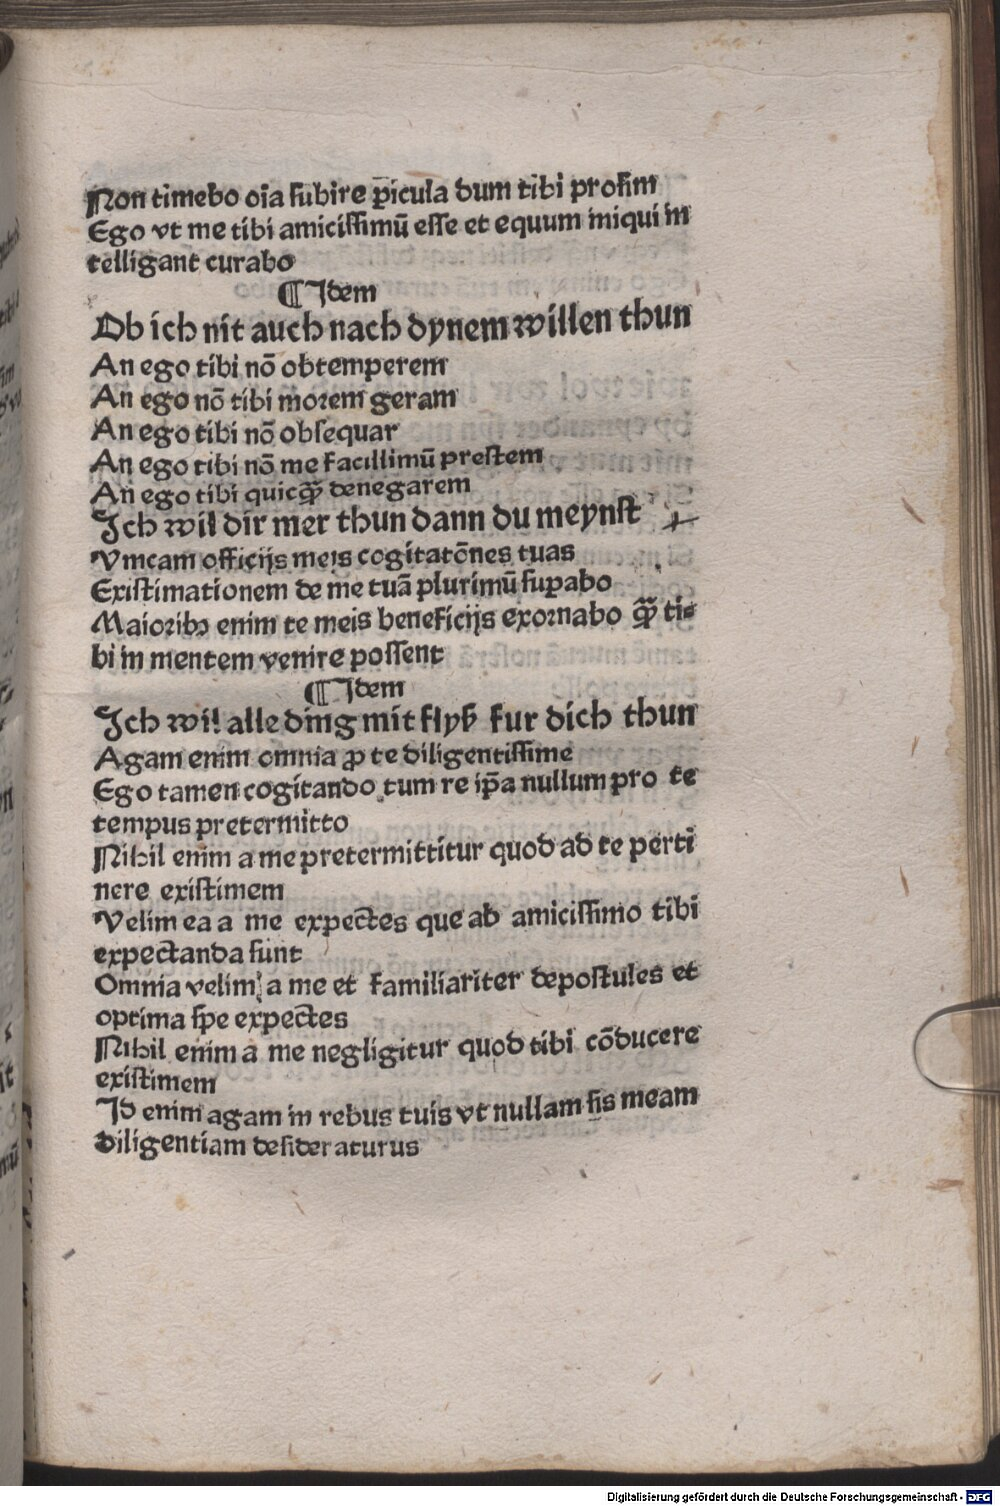 Non timebo oīa subire ꝑicula dum tibi prosim
Ego vt me tibi amicissimū esse et equum iniqui in
telligant curabo
¶ Idem
Ob ich nit auch nach dynem willen thun
An ego tibi nō obtemperem
An ego nō tibi morem geram
An ego tibi nō obsequar
An ego tibi nō me facillimū prestem
An ego tibi quicqꝫ̄ denegarem
Ich wil dir mer thun dann du meynst
Vincam officijs meis cogitatōnes tuas
Existimationem de me tuā plurimū suꝑabo
Maioribꝫ enim te meis beneficijs exornabo qꝫ̄ ti-
bi in mentem venire possent
¶ Idem
Ich wil alle ding mit flyß fur dich thun
Agam enim omnia ꝓ te diligentissime
Ego tamen cogitando tum re ip̄a nullum pro te
tempus pretermitto
Nihil enim a me pretermittitur quod ad te perti
nere existimem
Velim ea a me expectes que ab amicissimo tibi
expectanda sunt
Omnia velim a me et familiariter depostules et
optima spe expectes
Nihil enim a me negligitur quod tibi cōducere
existimem
Id enim agam in rebus tuis vt nullam sis meam
diligentiam desideraturus
Digitalisierung gefördert durch die Deutsche Forschungsgemeinschaft - DFG